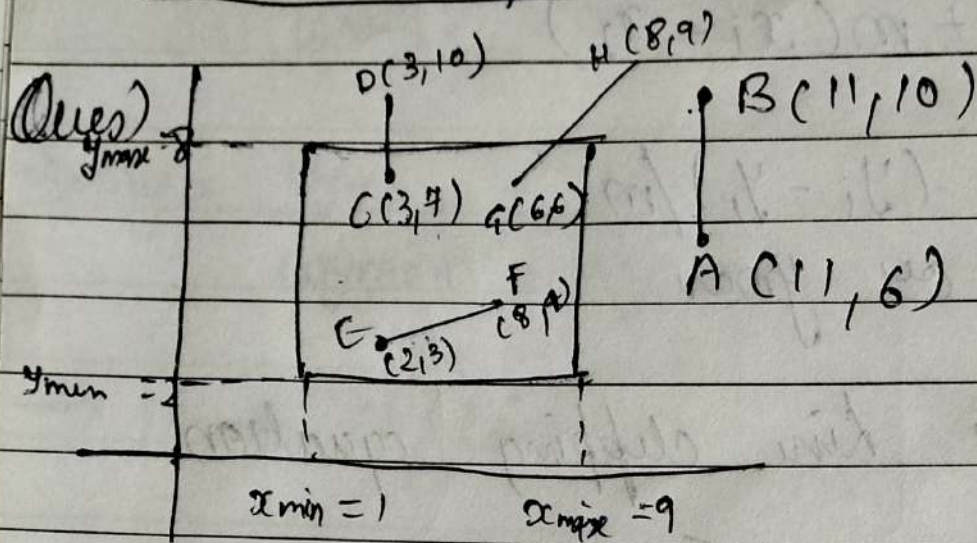 Ques)
D(3,10)
H(8,9)
B(11,10)
ymax = 8
C(3,7)
G(6,6)
A(11,6)
F
(8,4)
E
(2,3)
ymin = 2
xmin = 1
xmax = 9